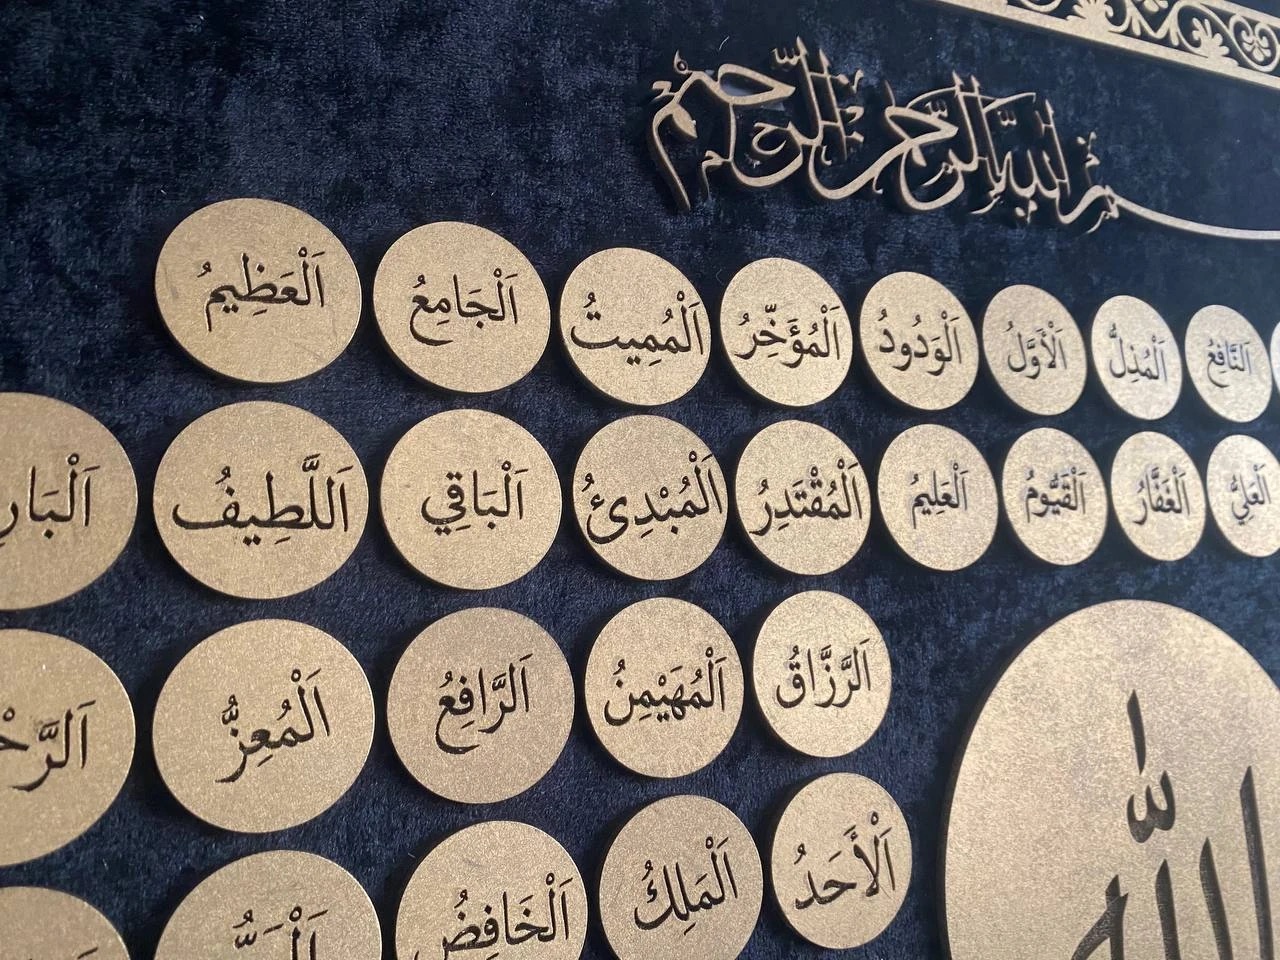 بسم الله الرحمن الرحيم
اَلنَّافِعُ اَلْمُذِلُّ اَلْأَوَّلُ اَلْوَدُودُ اَلْمُؤَخِّرُ اَلْمُمِيتُ اَلْجَامِعُ اَلْعَظِيمُ
اَلْعَلِيُّ اَلْغَفَّارُ اَلْقَيُّومُ اَلْعَلِيمُ اَلْمُقْتَدِرُ اَلْمُبْدِئُ اَلْبَاقِي اَللَّطِيفُ
اَلرَّزَّاقُ اَلْمُهَيْمِنُ اَلرَّافِعُ اَلْمُعِزُّ
اَلْأَحَدُ اَلْمَلِكُ اَلْخَافِضُ
الله